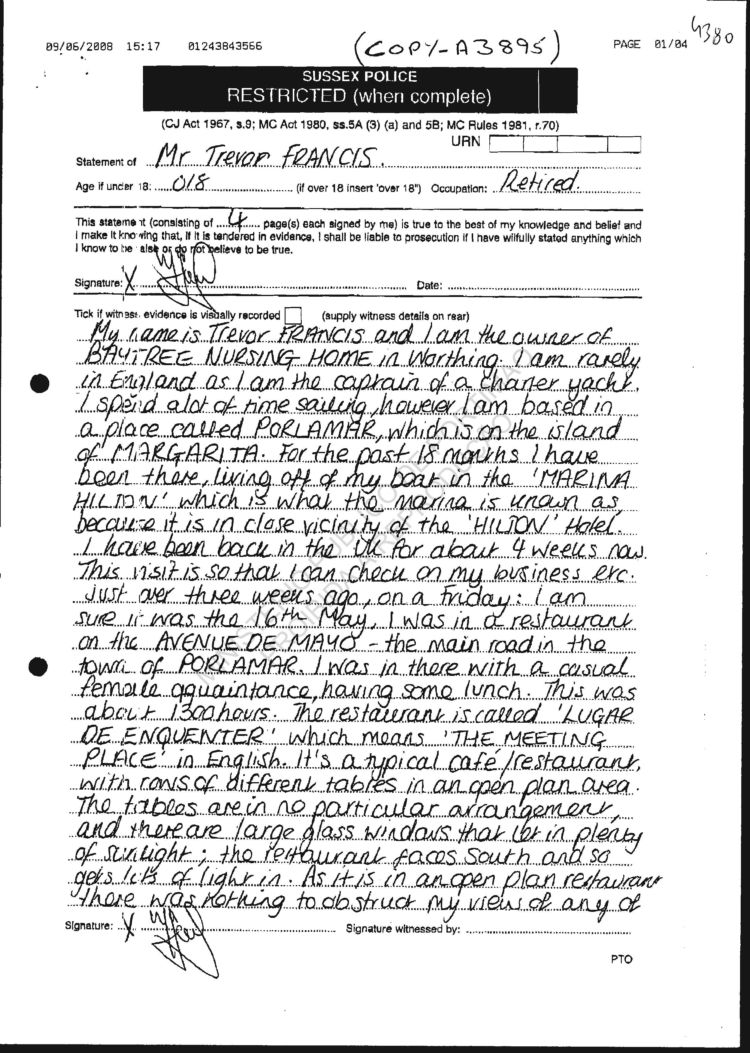 4380
09/06/2008 15:17 01243843566 (COPY-A3895) PAGE 01/04
SUSSEX POLICE
RESTRICTED (when complete)
(CJ Act 1967, s.9; MC Act 1980, ss.5A (3) (a) and 5B; MC Rules 1981, r.70)
URN
Statement of Mr Trevor FRANCIS.
Age if under 18: O/8 (if over 18 insert 'over 18') Occupation: Retired.
This statement (consisting of 4 page(s) each signed by me) is true to the best of my knowledge and belief and
I make it knowing that, if it is tendered in evidence, I shall be liable to prosecution if I have wilfully stated anything which
I know to be false or do not believe to be true.
Signature: X Date:
Tick if witness evidence is visually recorded (supply witness details on rear)
My name is Trevor FRANCIS and I am the owner of
BAYTREE NURSING HOME in Worthing. I am rarely
in England as I am the captain of a charter yacht.
I spend alot of time sailing, however I am based in
a place called PORLAMAR, which is on the island
of MARGARITA. For the past 18 months I have
been there, living off of my boat in the 'MARINA
HILTON' which is what the marina is known as,
because it is in close vicinity of the 'HILTON' Hotel.
I have been back in the UK for about 4 weeks now.
This visit is so that I can check on my business etc.
Just over three weeks ago, on a Friday: I am
sure it was the 16th May, I was in a restaurant
on the AVENUE DE MAYO - the main road in the
town of PORLAMAR. I was in there with a casual
female aquaintance, having some lunch. This was
about 1300 hours. The restaurant is called 'LUGAR
DE ENQUENTER' which means 'THE MEETING
PLACE' in English. It's a typical café/restaurant,
with rows of different tables in an open plan area.
The tables are in no particular arrangement,
and there are large glass windows that let in plenty
of sunlight; the restaurant faces South and so
gets lots of light in. As it is in an open plan restaurant
there was nothing to obstruct my views of any of
Signature: X Signature witnessed by:
PTO